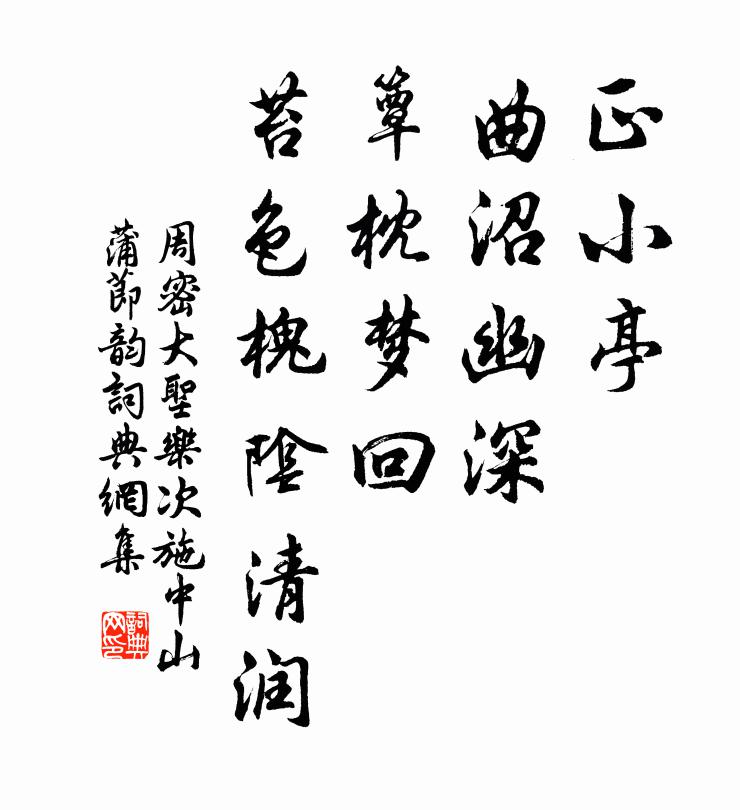 正小亭
曲沼幽深
簟枕梦回
苔色槐陰清润
周密大聖樂次施中山
蒲節韵詞典網集
詞典网印